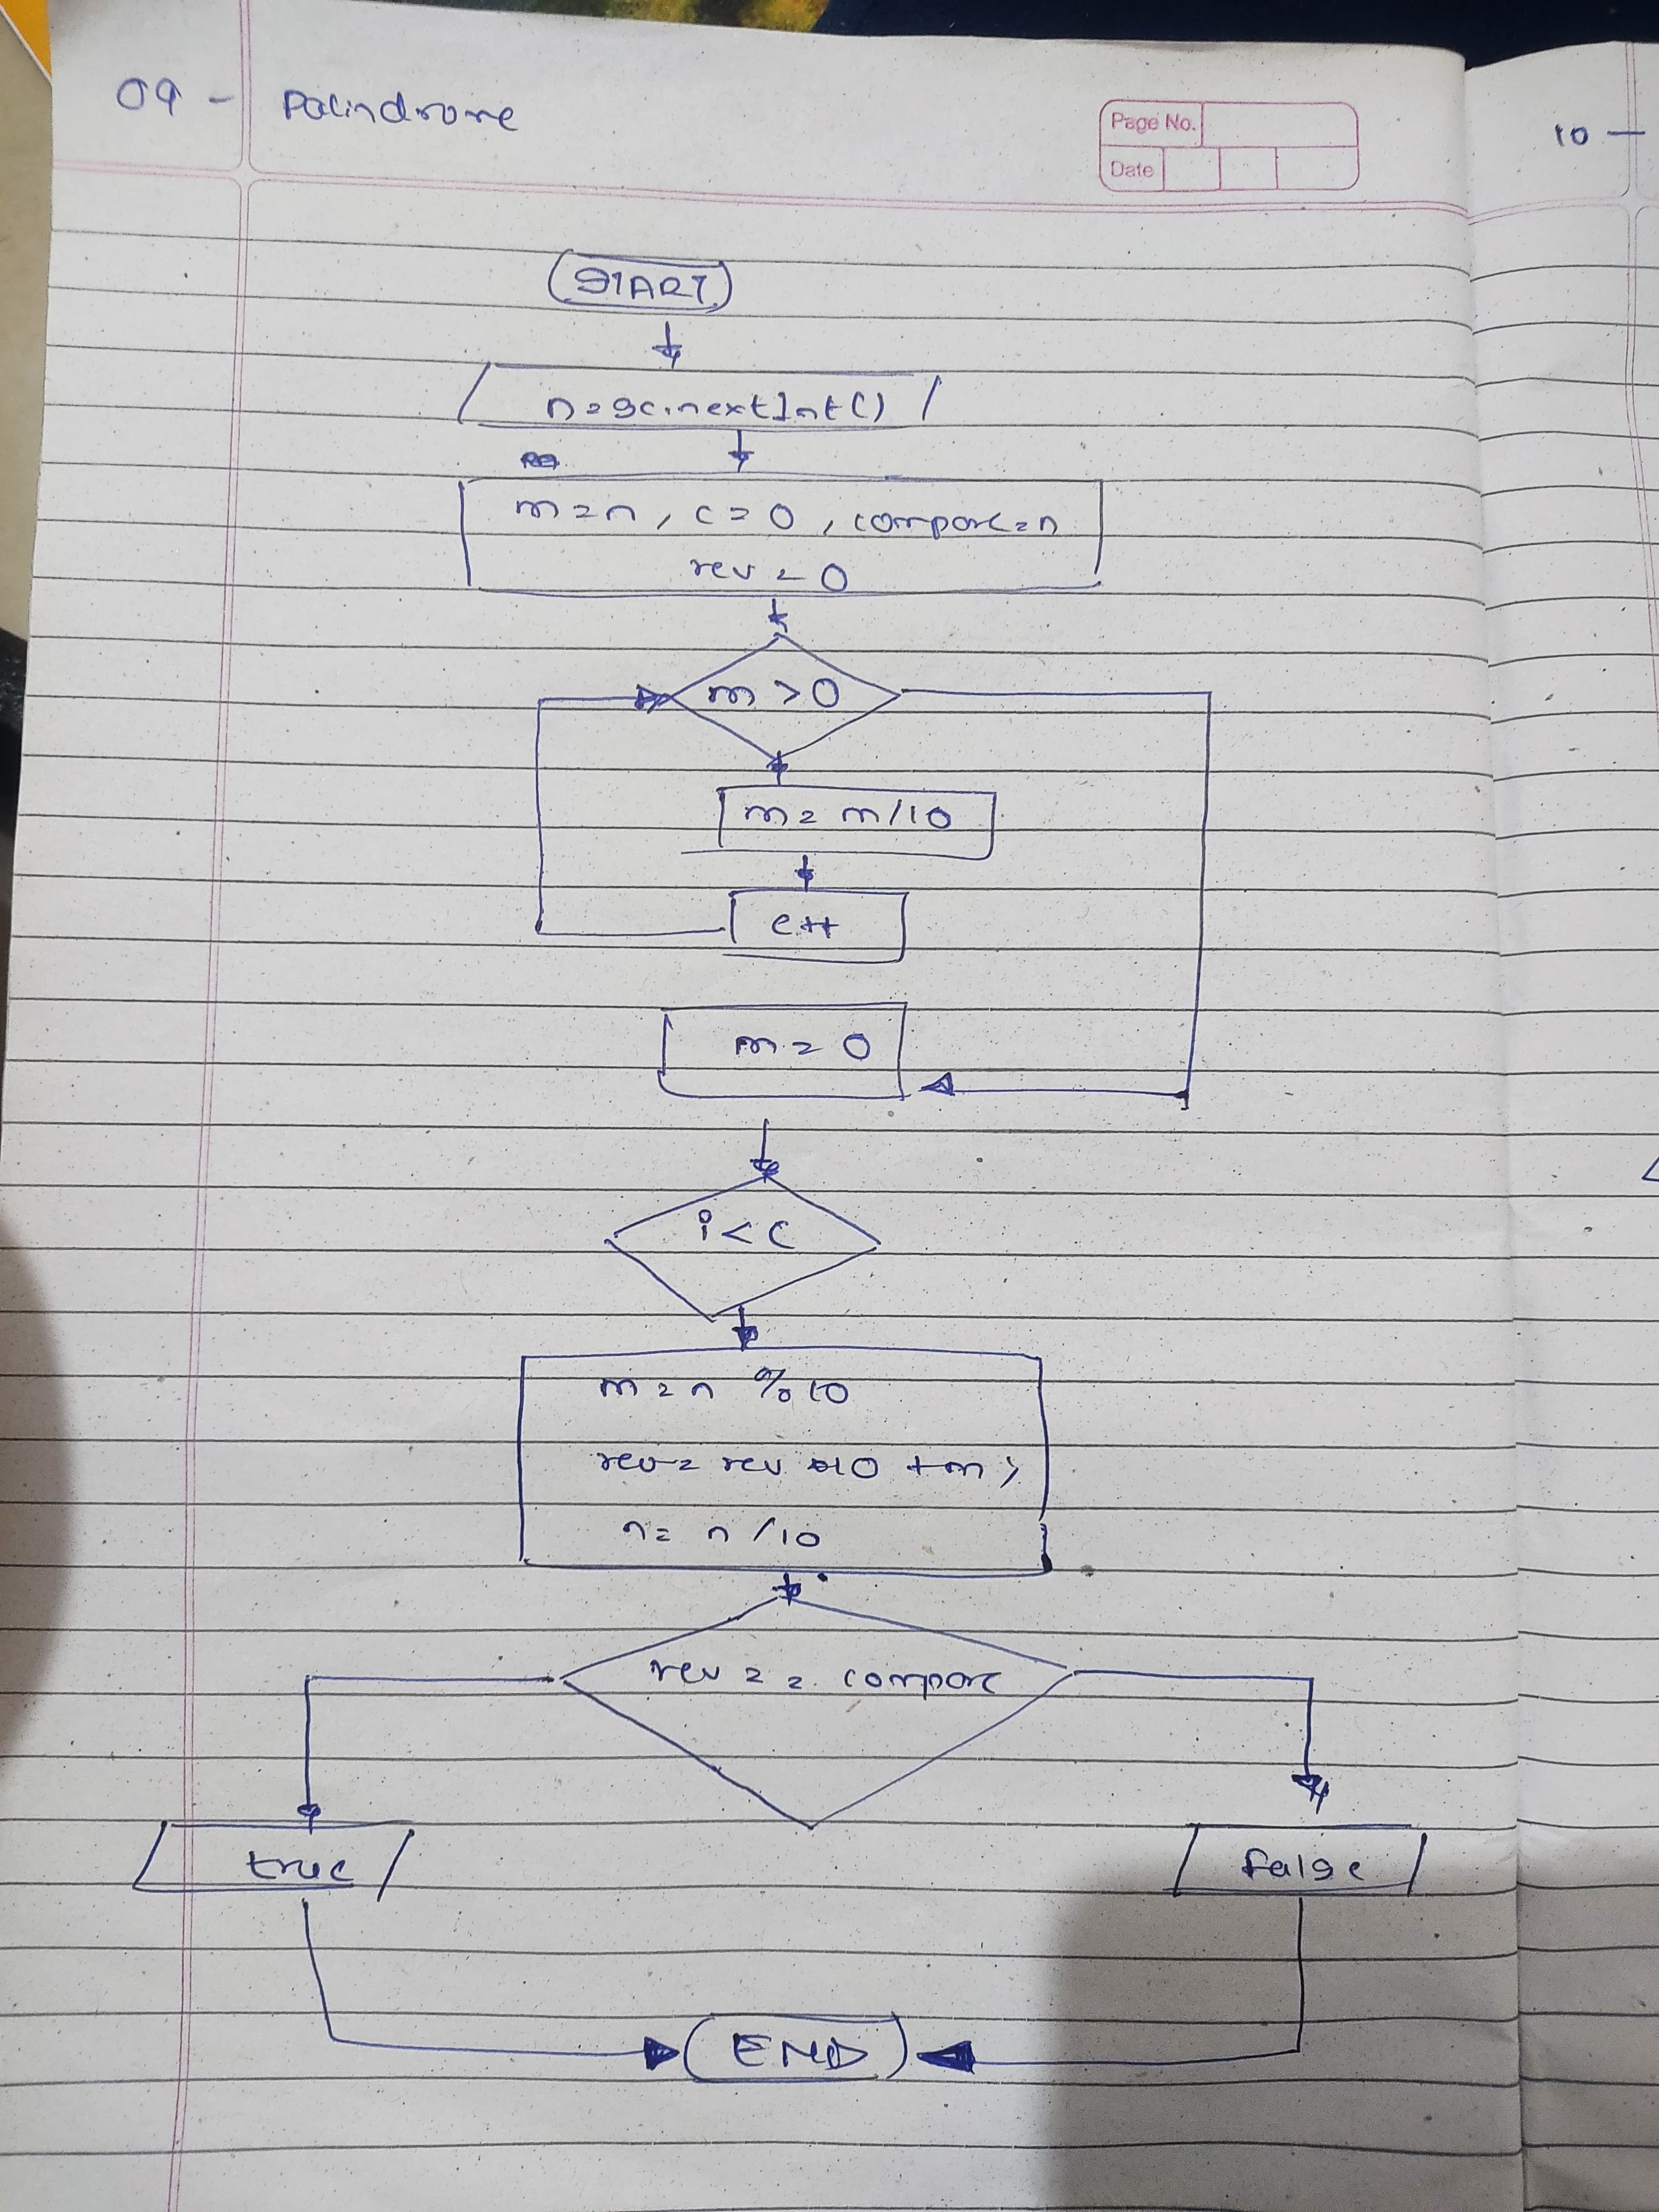 09 - Palindrome
Page No.
Date
10 —
START
n=sc.nextInt()
m=n, c=0, compare=n
rev=0
m>0
m=m/10
c++
m=0
i<c
m=n %10
rev=rev *10 +m;
n=n/10
rev == compare
true
false
END